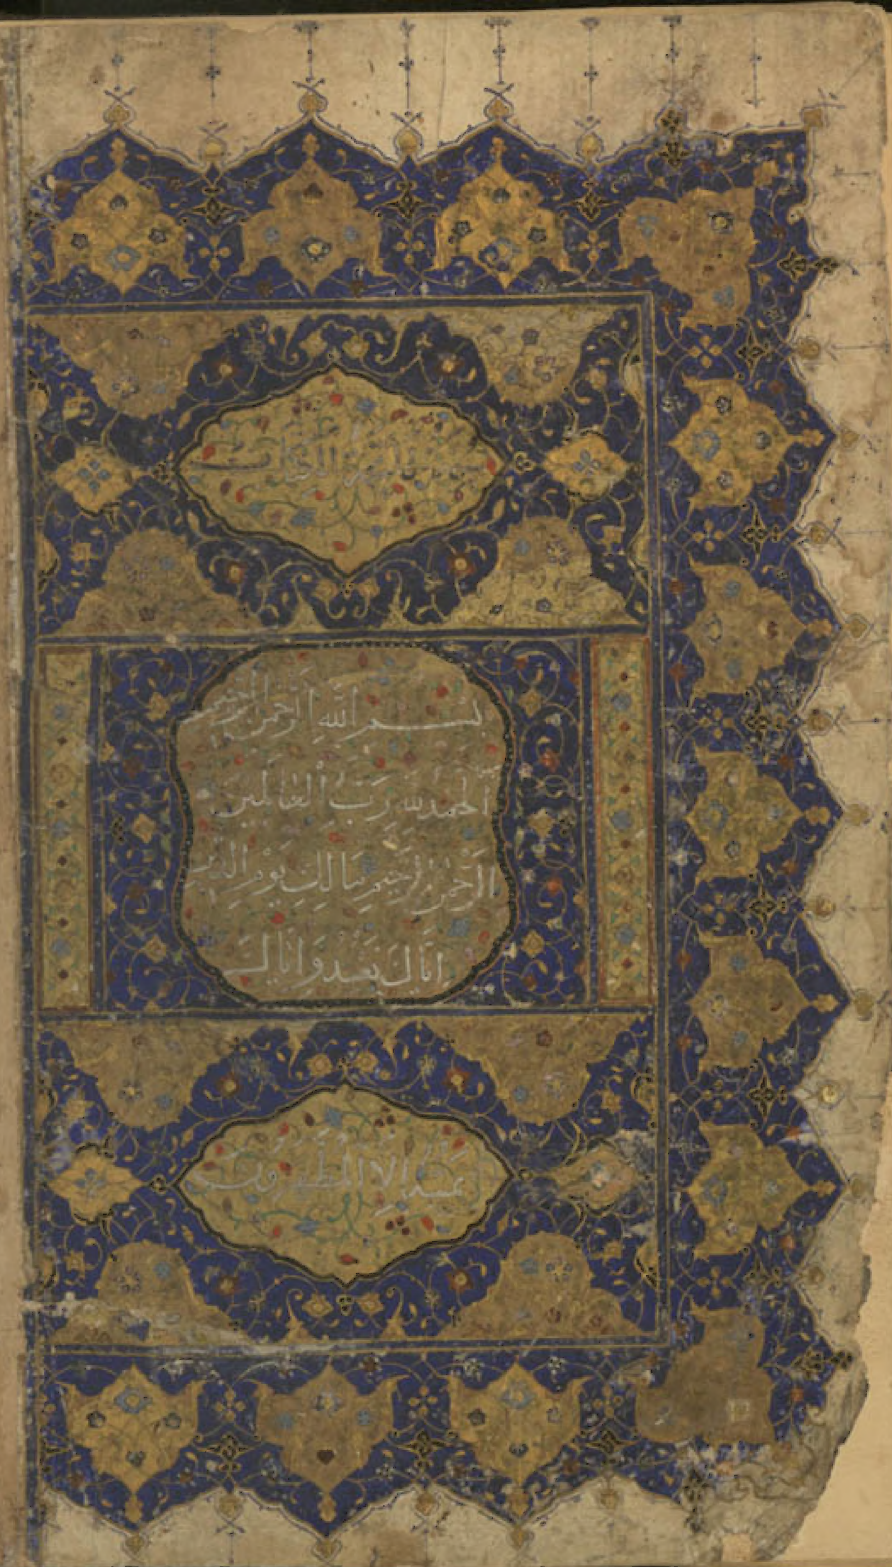 بسم اللّٰه الرحمن الرحيم
الحمد لله رب العالمين
الرحمن الرحيم مالك يوم الدين
اياك نعبد واياك
يمسه الا المطهرون